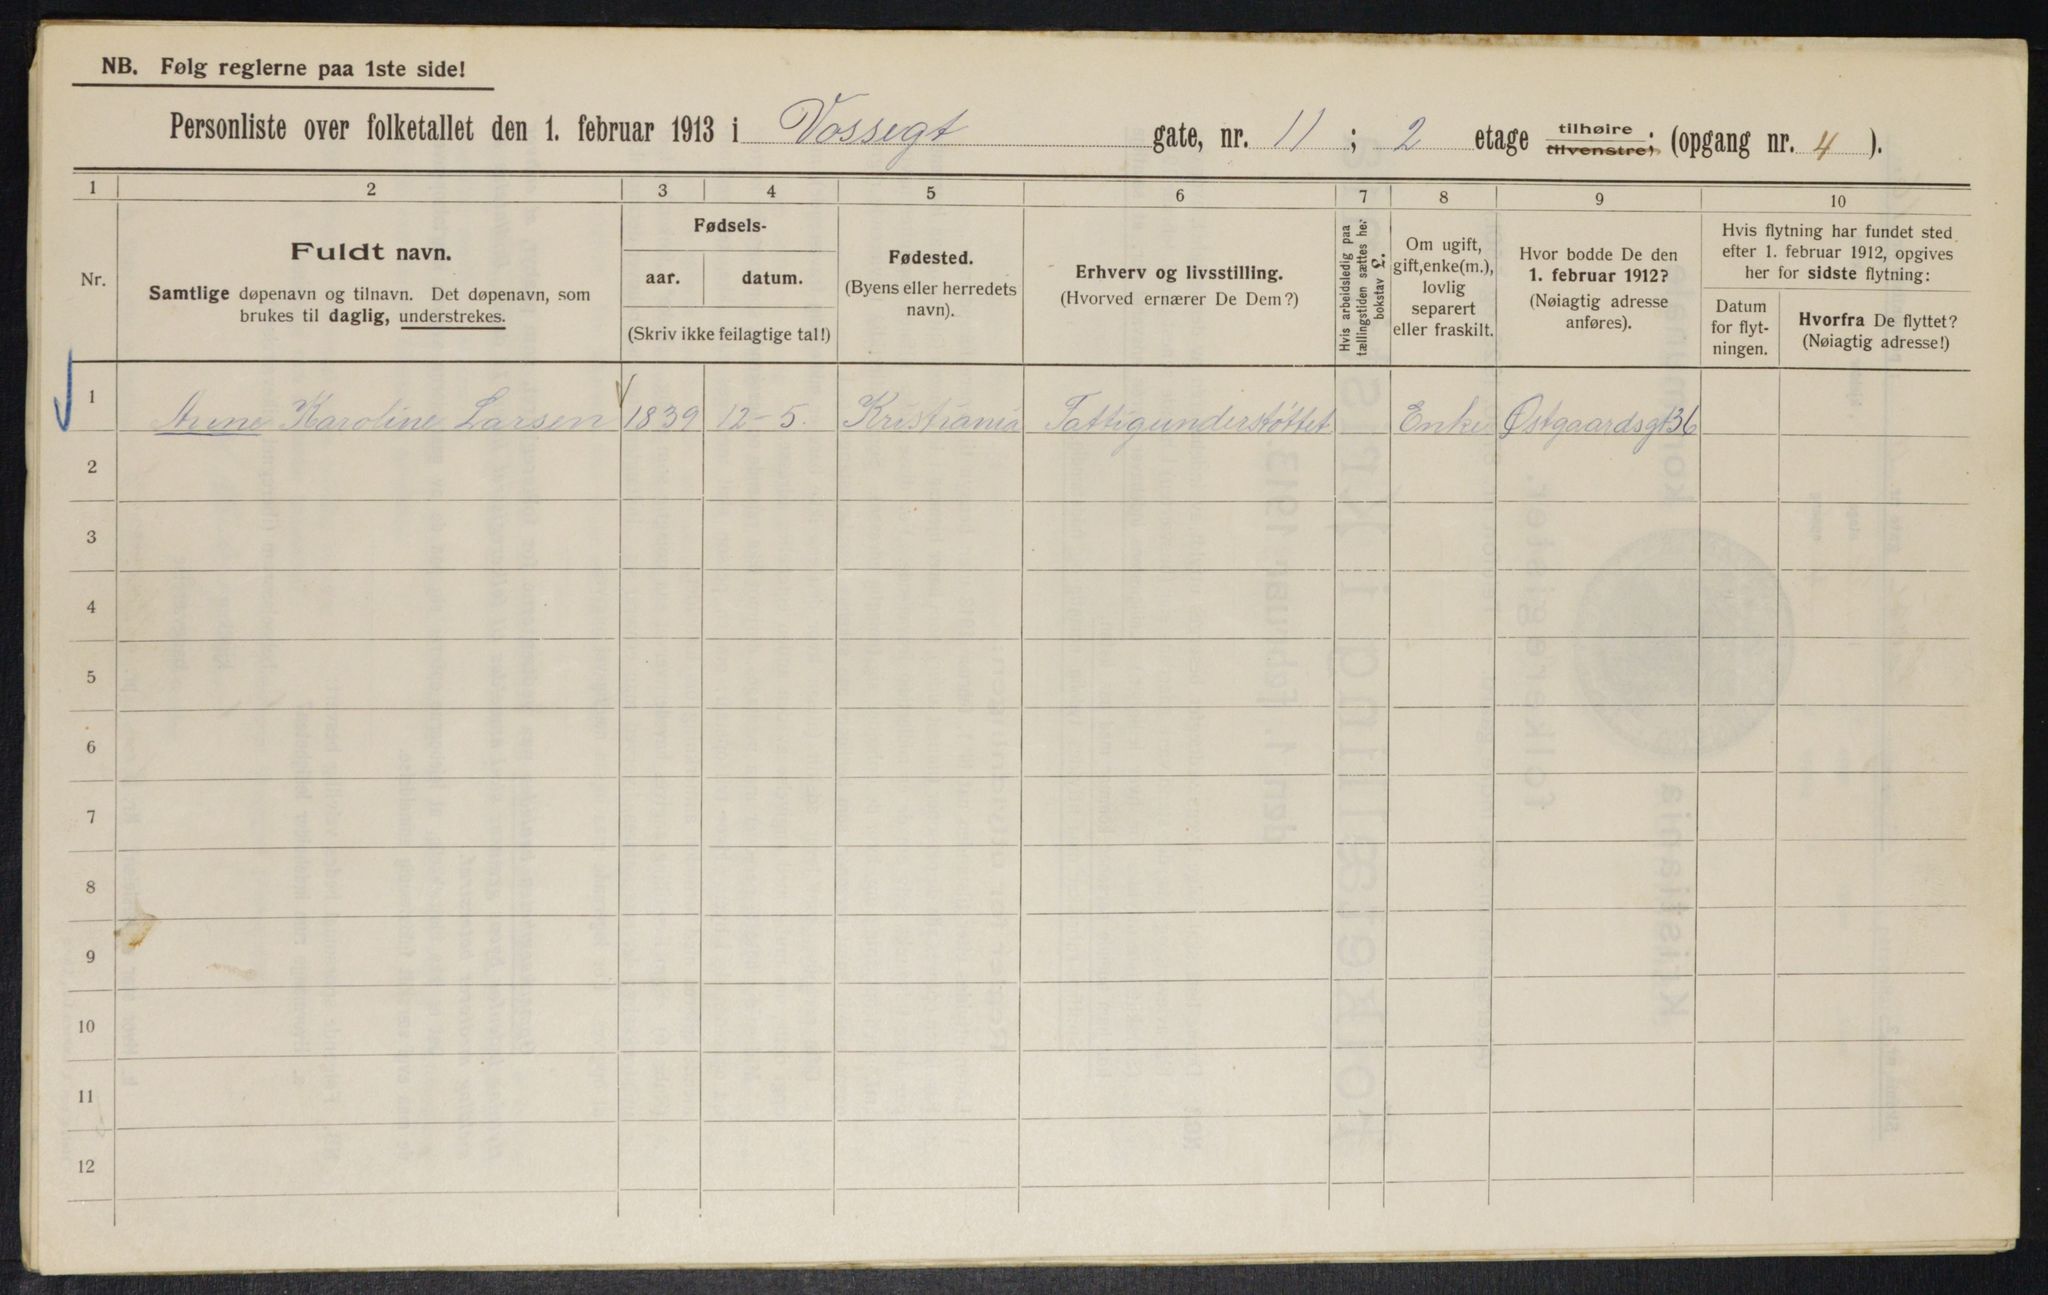 NB. Følg reglerne paa 1ste side!
Personliste over folketallet den 1. februar 1913 i Vossegt gate, nr. 11 ; 2 etage tilhøire tilvenstre; (opgang nr. 4 ).
1 2 3 4 5 6 7 8 9 10
Nr.
Fuldt navn.
Samtlige døpenavn og tilnavn. Det døpenavn, som
brukes til daglig, understrekes.
Fødsels-
aar. datum.
(Skriv ikke feilagtige tal!)
Fødested.
(Byens eller herredets
navn).
Erhverv og livsstilling.
(Hvorved ernærer De Dem?)
Hvis arbeidsledig paa
tællingstiden sættes her
bokstav L.
Om ugift,
gift, enke(m.),
lovlig
separert
eller fraskilt.
Hvor bodde De den
1. februar 1912?
(Nøiagtig adresse
anføres).
Hvis flytning har fundet sted
efter 1. februar 1912, opgives
her for sidste flytning:
Datum
for flyt-
ningen.
Hvorfra De flyttet?
(Nøiagtig adresse!)
1 Anne Karoline Larsen 1839 12-5. Kristiania Fattigunderstøttet Enke Østgaardsgt 36
2
3
4
5
6
7
8
9
10
11
12